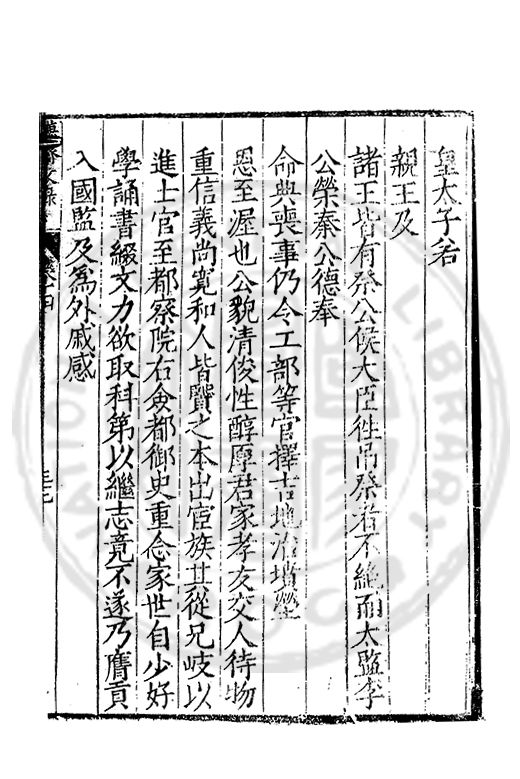 皇太子若
親王及
諸王皆有祭公侯大臣徃吊祭者不絶而太監李
公榮秦公德奉
命典喪事仍令工部等官擇吉地治墳塋
恩至渥也公貌清俊性醇厚君家孝友交人待物
重信義尚寛和人皆賢之本出宦族其從兄岐以
進士官至都察院右僉都御史重念家世自少好
學誦書綴文力欲取科第以繼志竟不遂乃膺貢
入國監及為外戚感